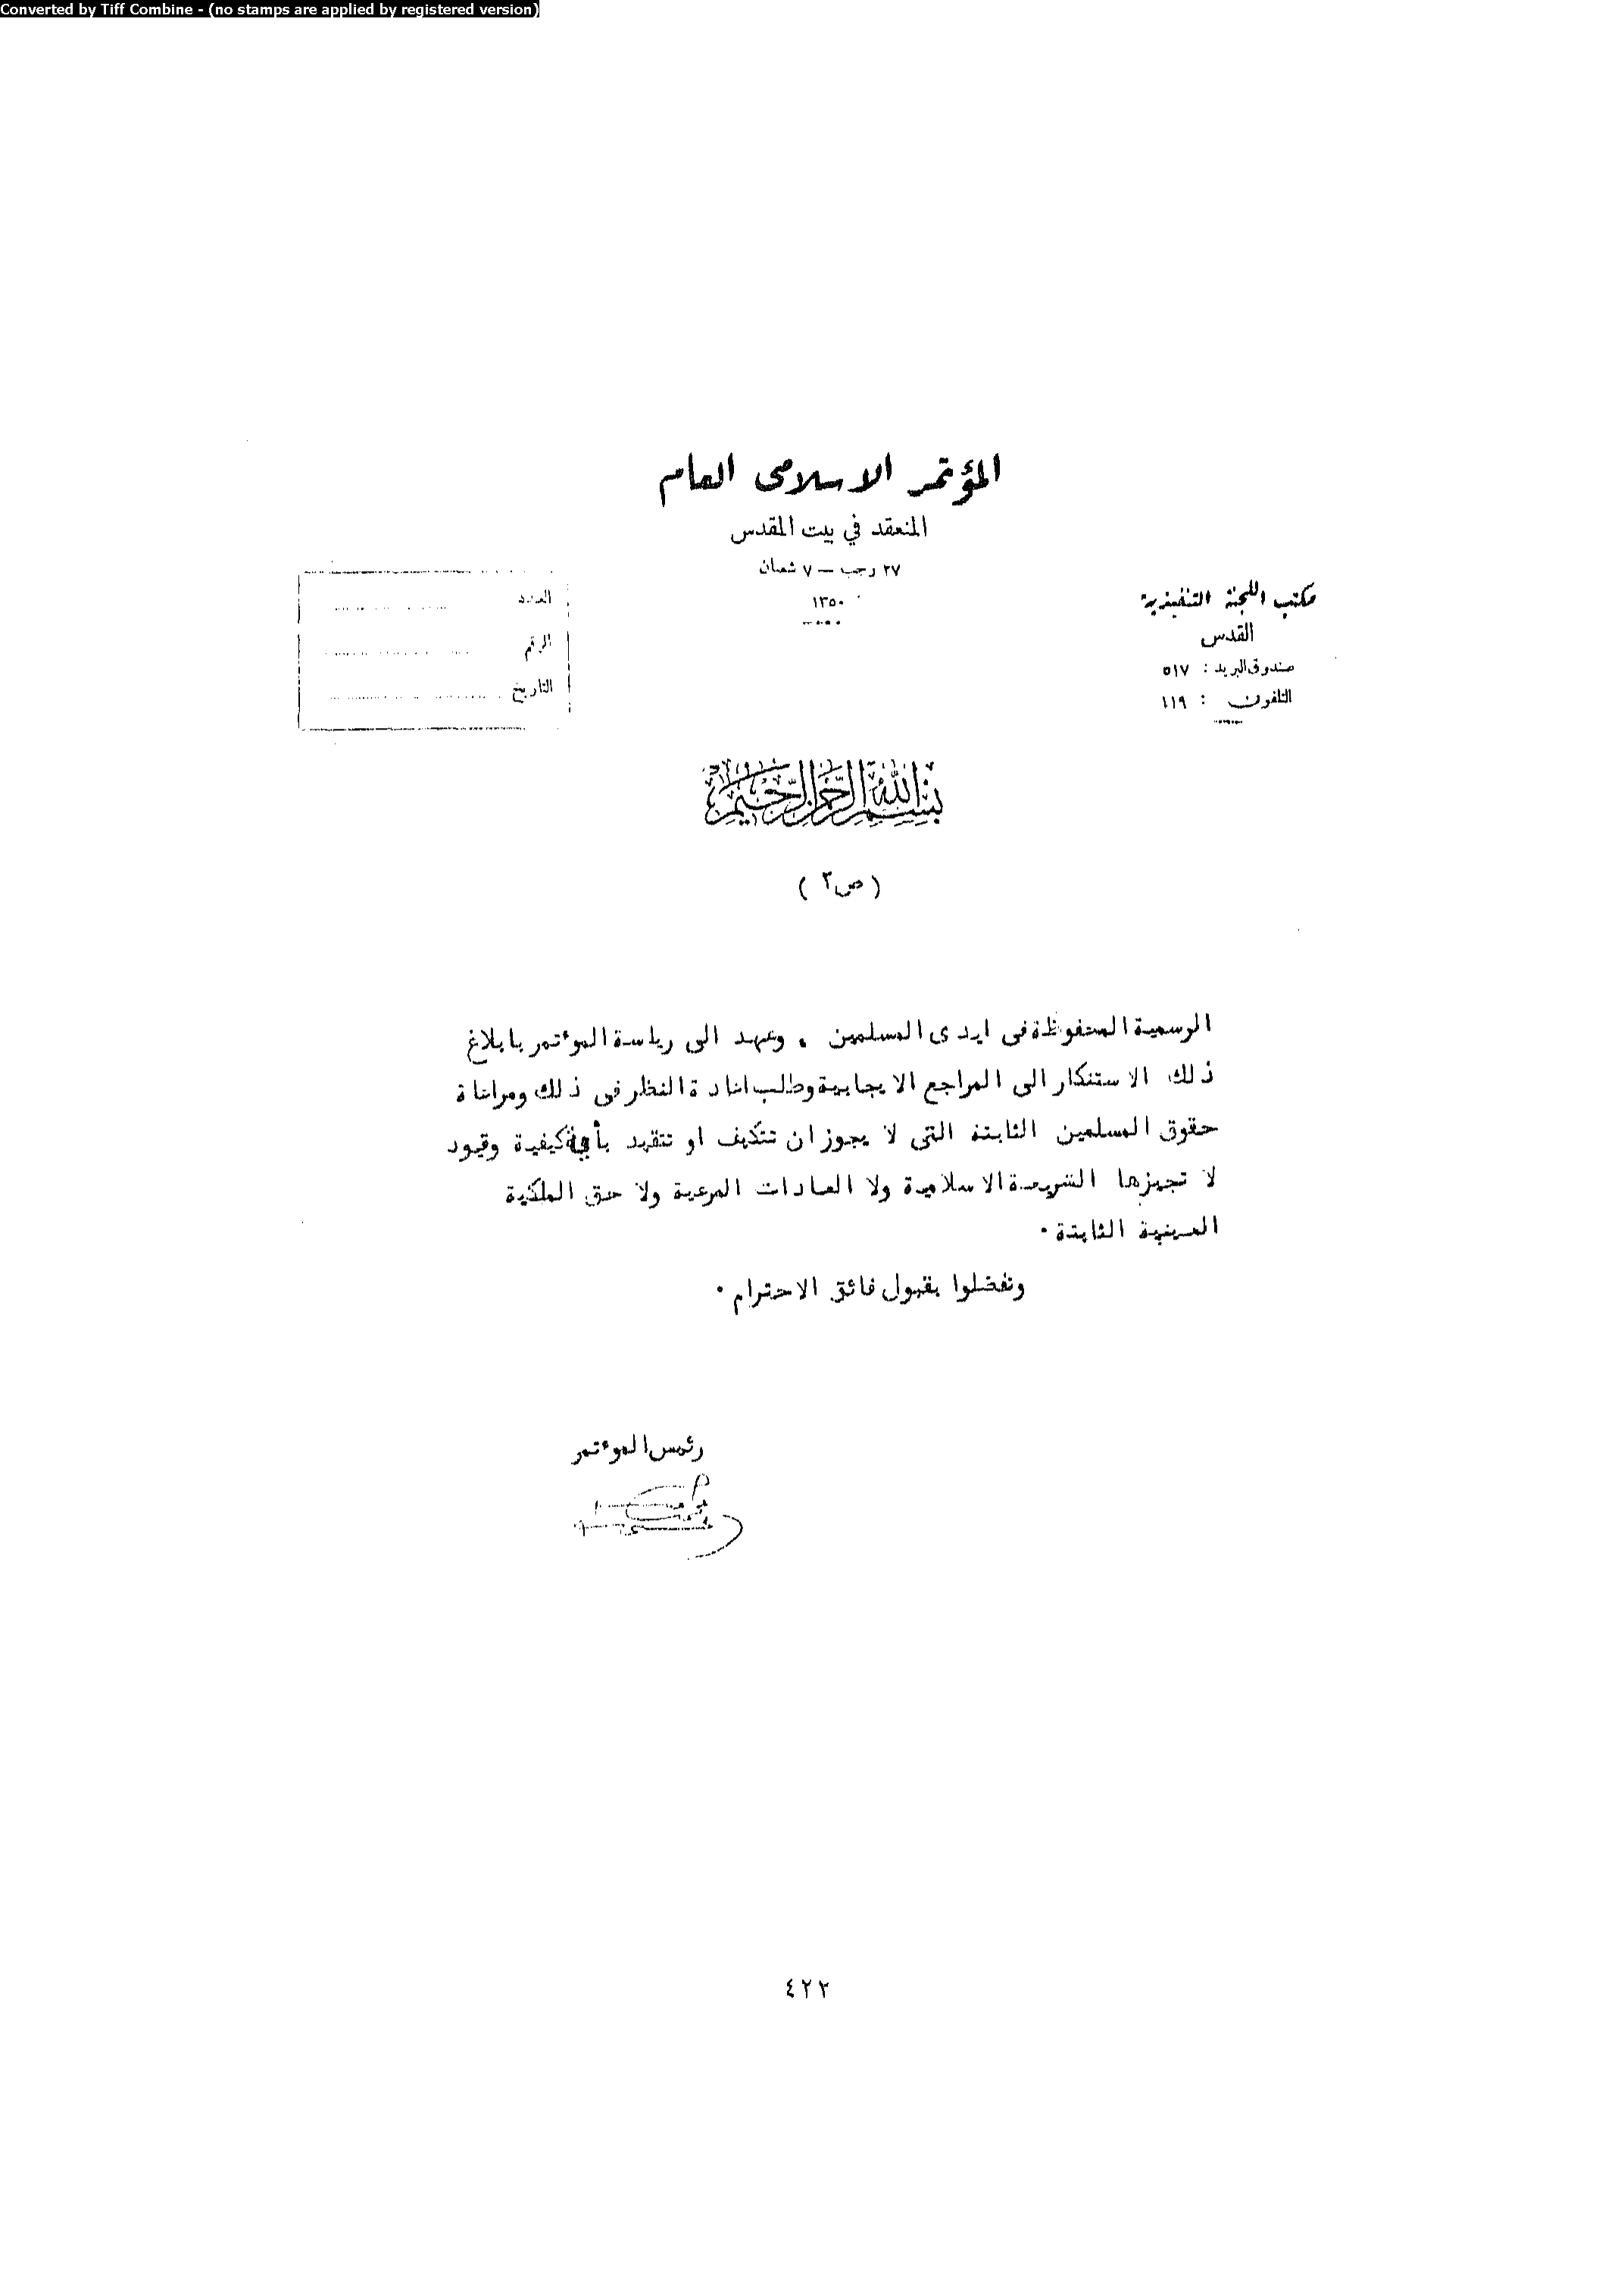 Converted by Tiff Combine - (no stamps are applied by registered version)
المؤتمر الاسلامى العام
المنعقد في بيت المقدس
٢٧ رجب — ٧ شعبان
١٣٥٠
مكتب اللجنة التنفيذية
القدس
صندوق البريد : ٥١٧
التلفون : ١١٩
العدد
الرقم
التاريخ
بسم الله الرحمن الرحيم
( ص٢ )
الرسمية المحفوظة فى ايدى المسلمين . وعهد الى رياسة الموءتمر بابلاغ
ذلك الاستنكار الى المراجع الايجابية وطلب اعادة النظر فى ذلك ومراعاة
حقوق المسلمين الثابتة التى لا يجوز ان تتكيف او تتقيد بأية كيفية وقيود
لا تجيزها الشريعة الاسلامية ولا العادات المرعية ولا حق الملكية
العينية الثابتة .
وتفضلوا بقبول فائق الاحترام .
رئيس الموءتمر
٤٢٢